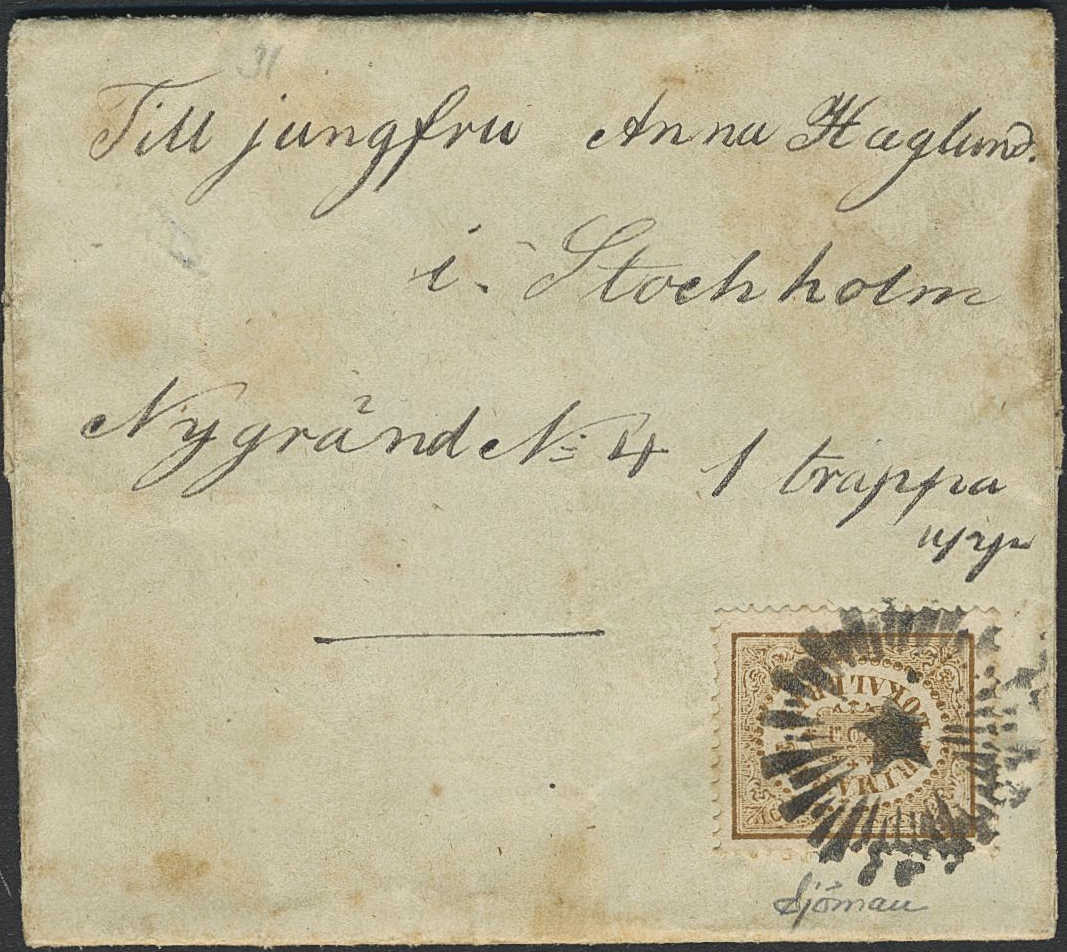 31
Till jungfru Anna Hæglund.
i Stockholm
Nygränd No 4 1 trappa
upp
LOKALBREF
FRIMÄRKE
Sjöman